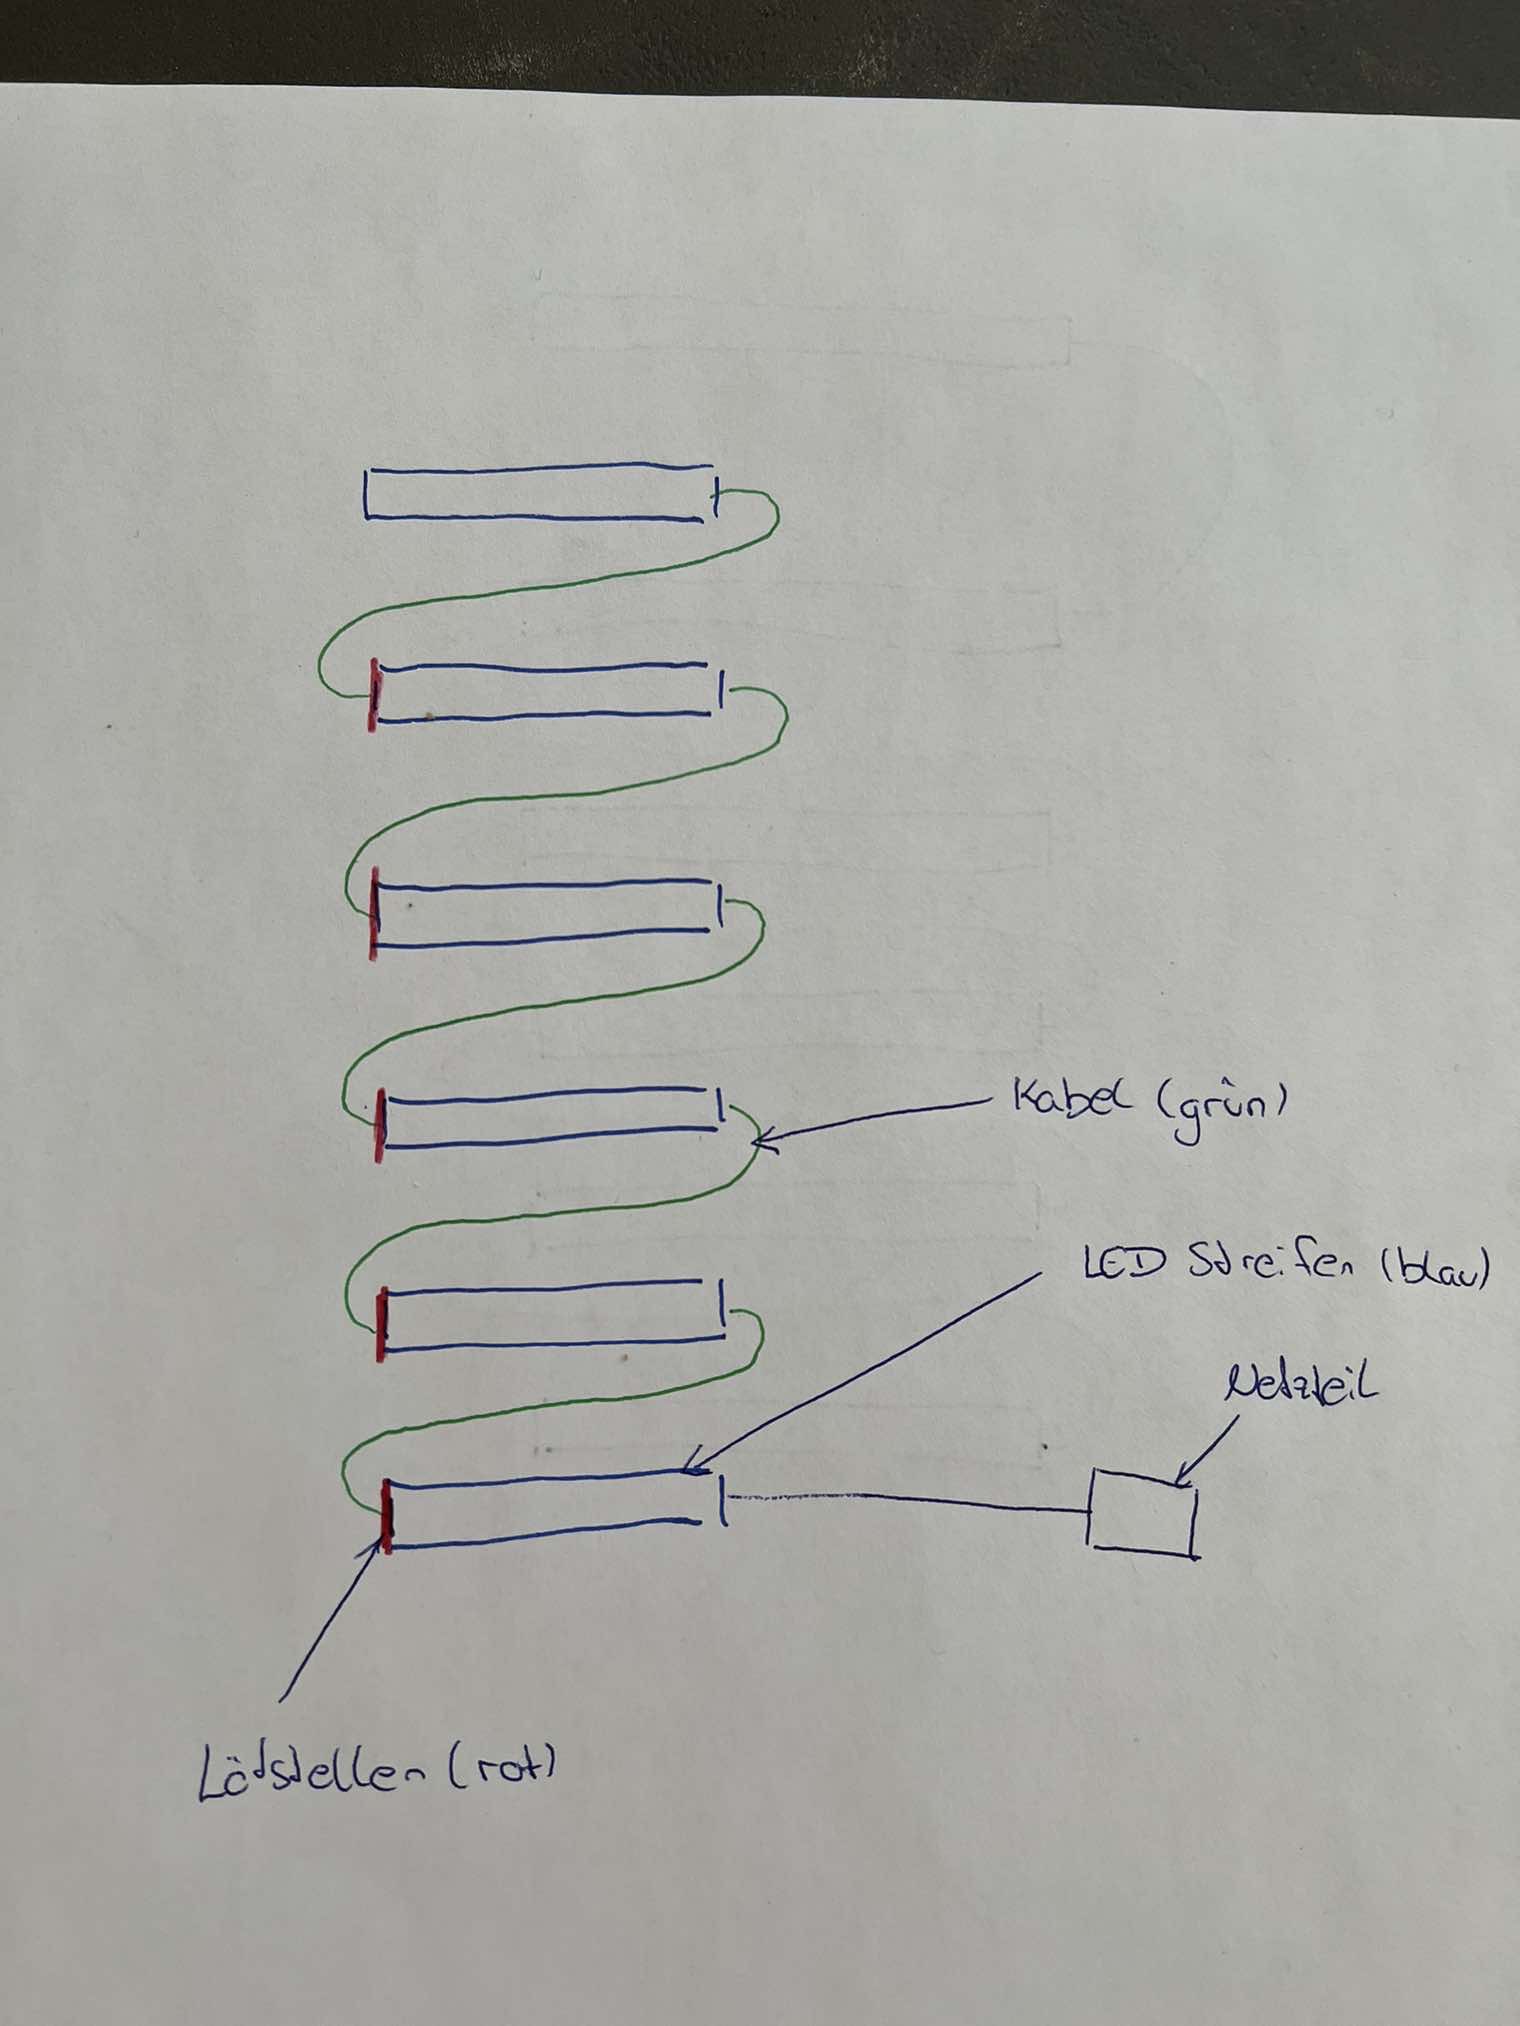 Kabel (grün)
LED Streifen (blau)
Netzteil
Lötstellen (rot)